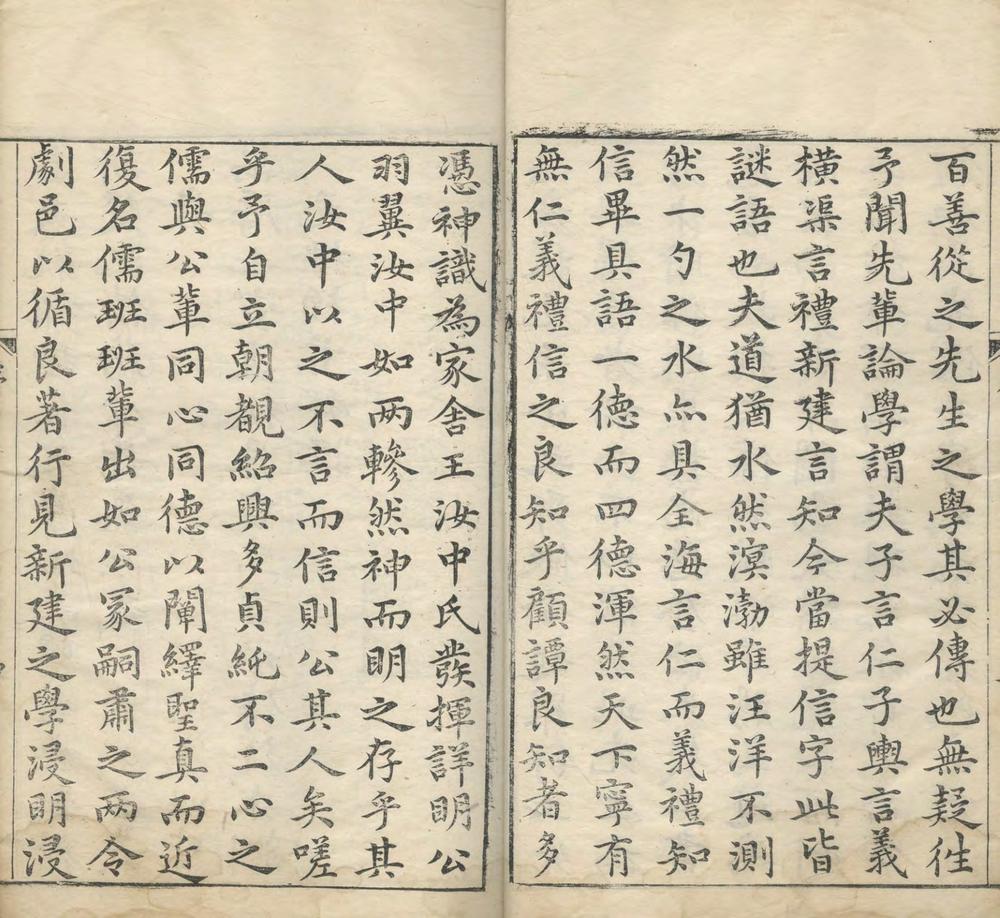 百善從之先生之學其必傳也無疑徃
予聞先軰論學謂夫子言仁子輿言義
橫渠言禮新建言知今當提信字此皆
謎語也夫道猶水然溟渤雖汪洋不測
然一勺之水亦具全海言仁而義禮知
信畢具語一德而四德渾然天下寧有
無仁義禮信之良知乎顧譚良知者多
憑神識為家舍王汝中氏發揮詳明公
羽翼汝中如两轓然神而明之存乎其
人汝中以之不言而信則公其人矣嗟
乎予自立朝覩紹興多貞純不二心之
儒與公軰同心同德以闡繹聖真而近
復名儒班班軰出如公冡嗣肅之两令
劇邑以循良著行見新建之學浸明浸